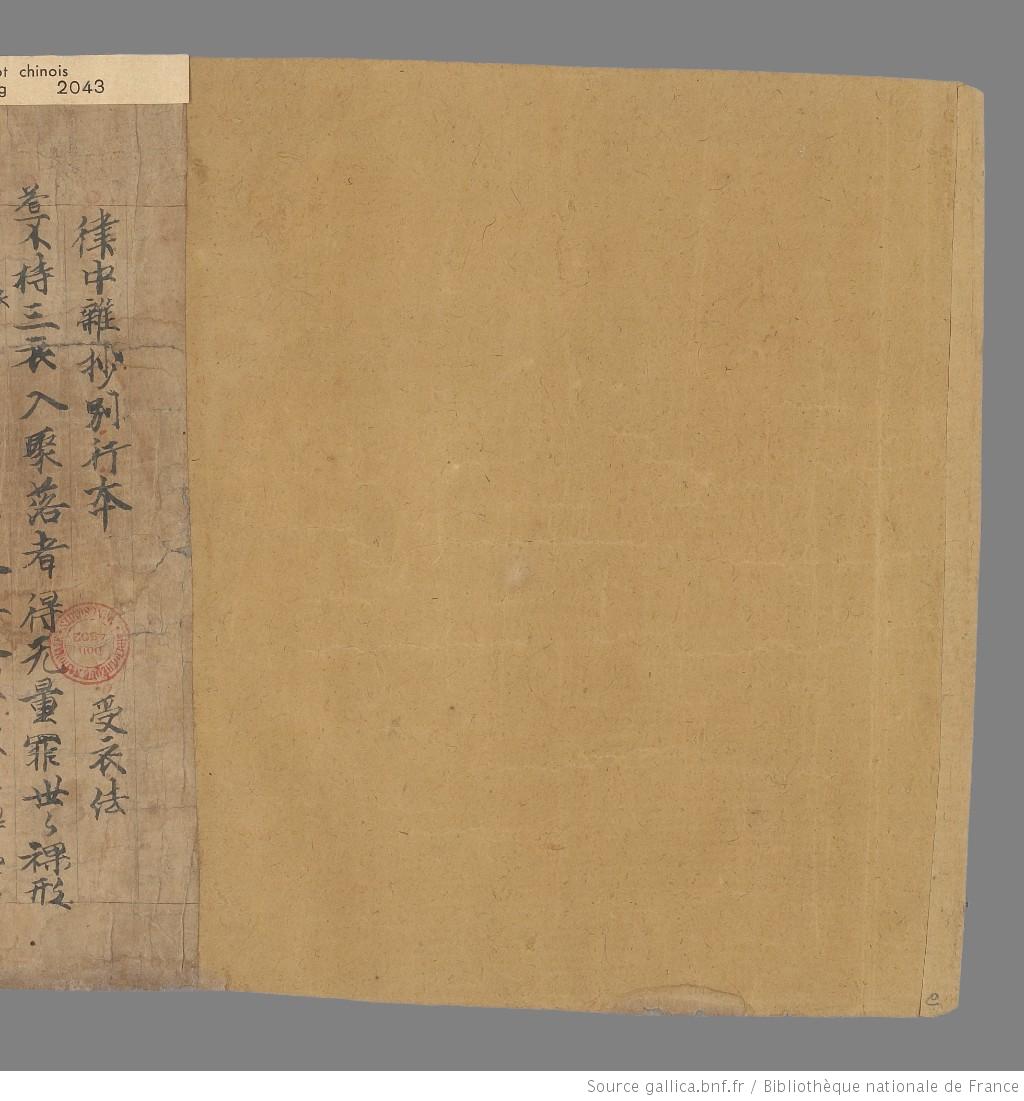 ot chinois
g 2043
律中雜抄別行本 受衣法
若不持三衣入聚落者得无量罪世〻裸形
Source gallica.bnf.fr / Bibliothèque nationale de France